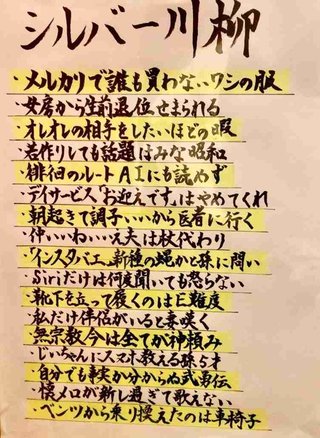 シルバー川柳
・メルカリで誰も買わないワシの服
・女房から生前退位せまられる
・オレオレの相手をしたいほどの暇
・若作りしても話題はみな昭和
・徘徊のルートAIにも読めず
・デイサービス「お迎えです」はやめてくれ
・朝起きて調子いいから医者に行く
・仲いいねいいえ夫は杖代わり
・インスタバエ新種の蠅かと孫に問い
・Siriだけは何度聞いても怒らない
・靴下を立って履くのはE難度
・私だけ伴侶がいると妻嘆く
・無宗教今は全てが神頼み
・じいちゃんにスマホ教える孫5才
・自分でも事実か分からぬ武勇伝
・懐メロが新し過ぎて歌えない
・ベンツから乗り換えたのは車椅子